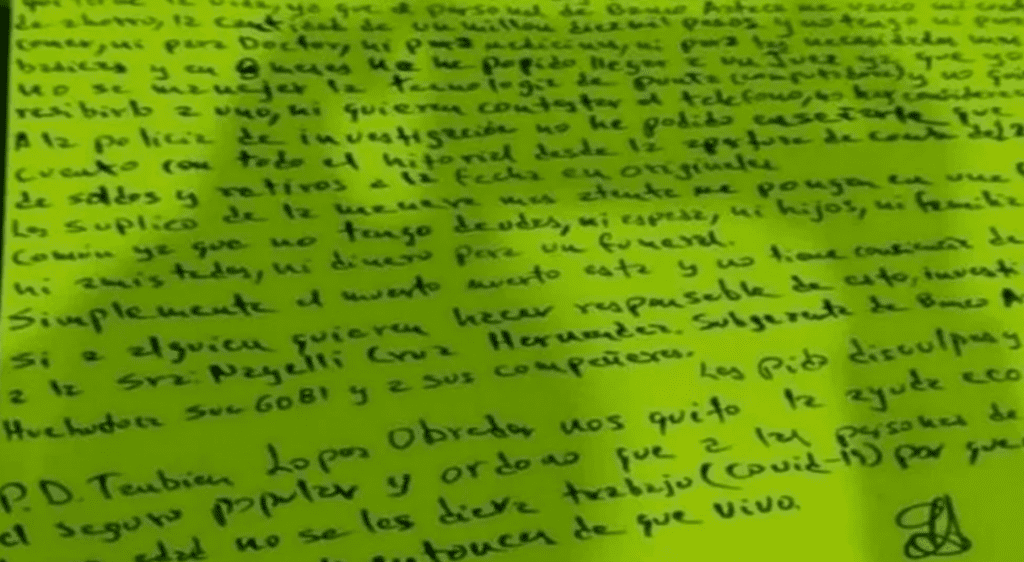 vida, ya que el personal de Banco Azteca me vacio mi
de ahorro, la cantidad de un millon pesos y no tengo ni para
comer, ni para Doctor, ni para medicinas, ni para las necesidades mas
basicas y en meses no he podido llegar a un Juez ya que yo
no se manejar la tecnologia de punta (computadora) y no
resibirlo a uno, ni quieren contestar el telefono, no hay
A la policia de investigación no he podido enseñarle que
cuento con todo el hitorial desde la apertura de
de saldos y retiros a la fecha en originales
Les suplico de la manera mas atenta me pongan en una
común ya que no tengo deudos, ni esposa, ni hijos, ni familia
ni amistades, ni dinero para un funeral.
Simplemente el muerto muerto esta y no tiene de
si a alguien quieren hacer responsable de esto,
a la Sra: Nayelli Cruz Hernandez. Subgerente de Banco
Huehuetoca Suc 6081 y a sus compañeros.
Les pido disculpas y
P.D. Tambien Lopez Obrador nos quito la ayuda
el seguro popular y ordeno que a las personas de
edad no se les diera trabajo (covid-19) por que
entonces de que vivo.